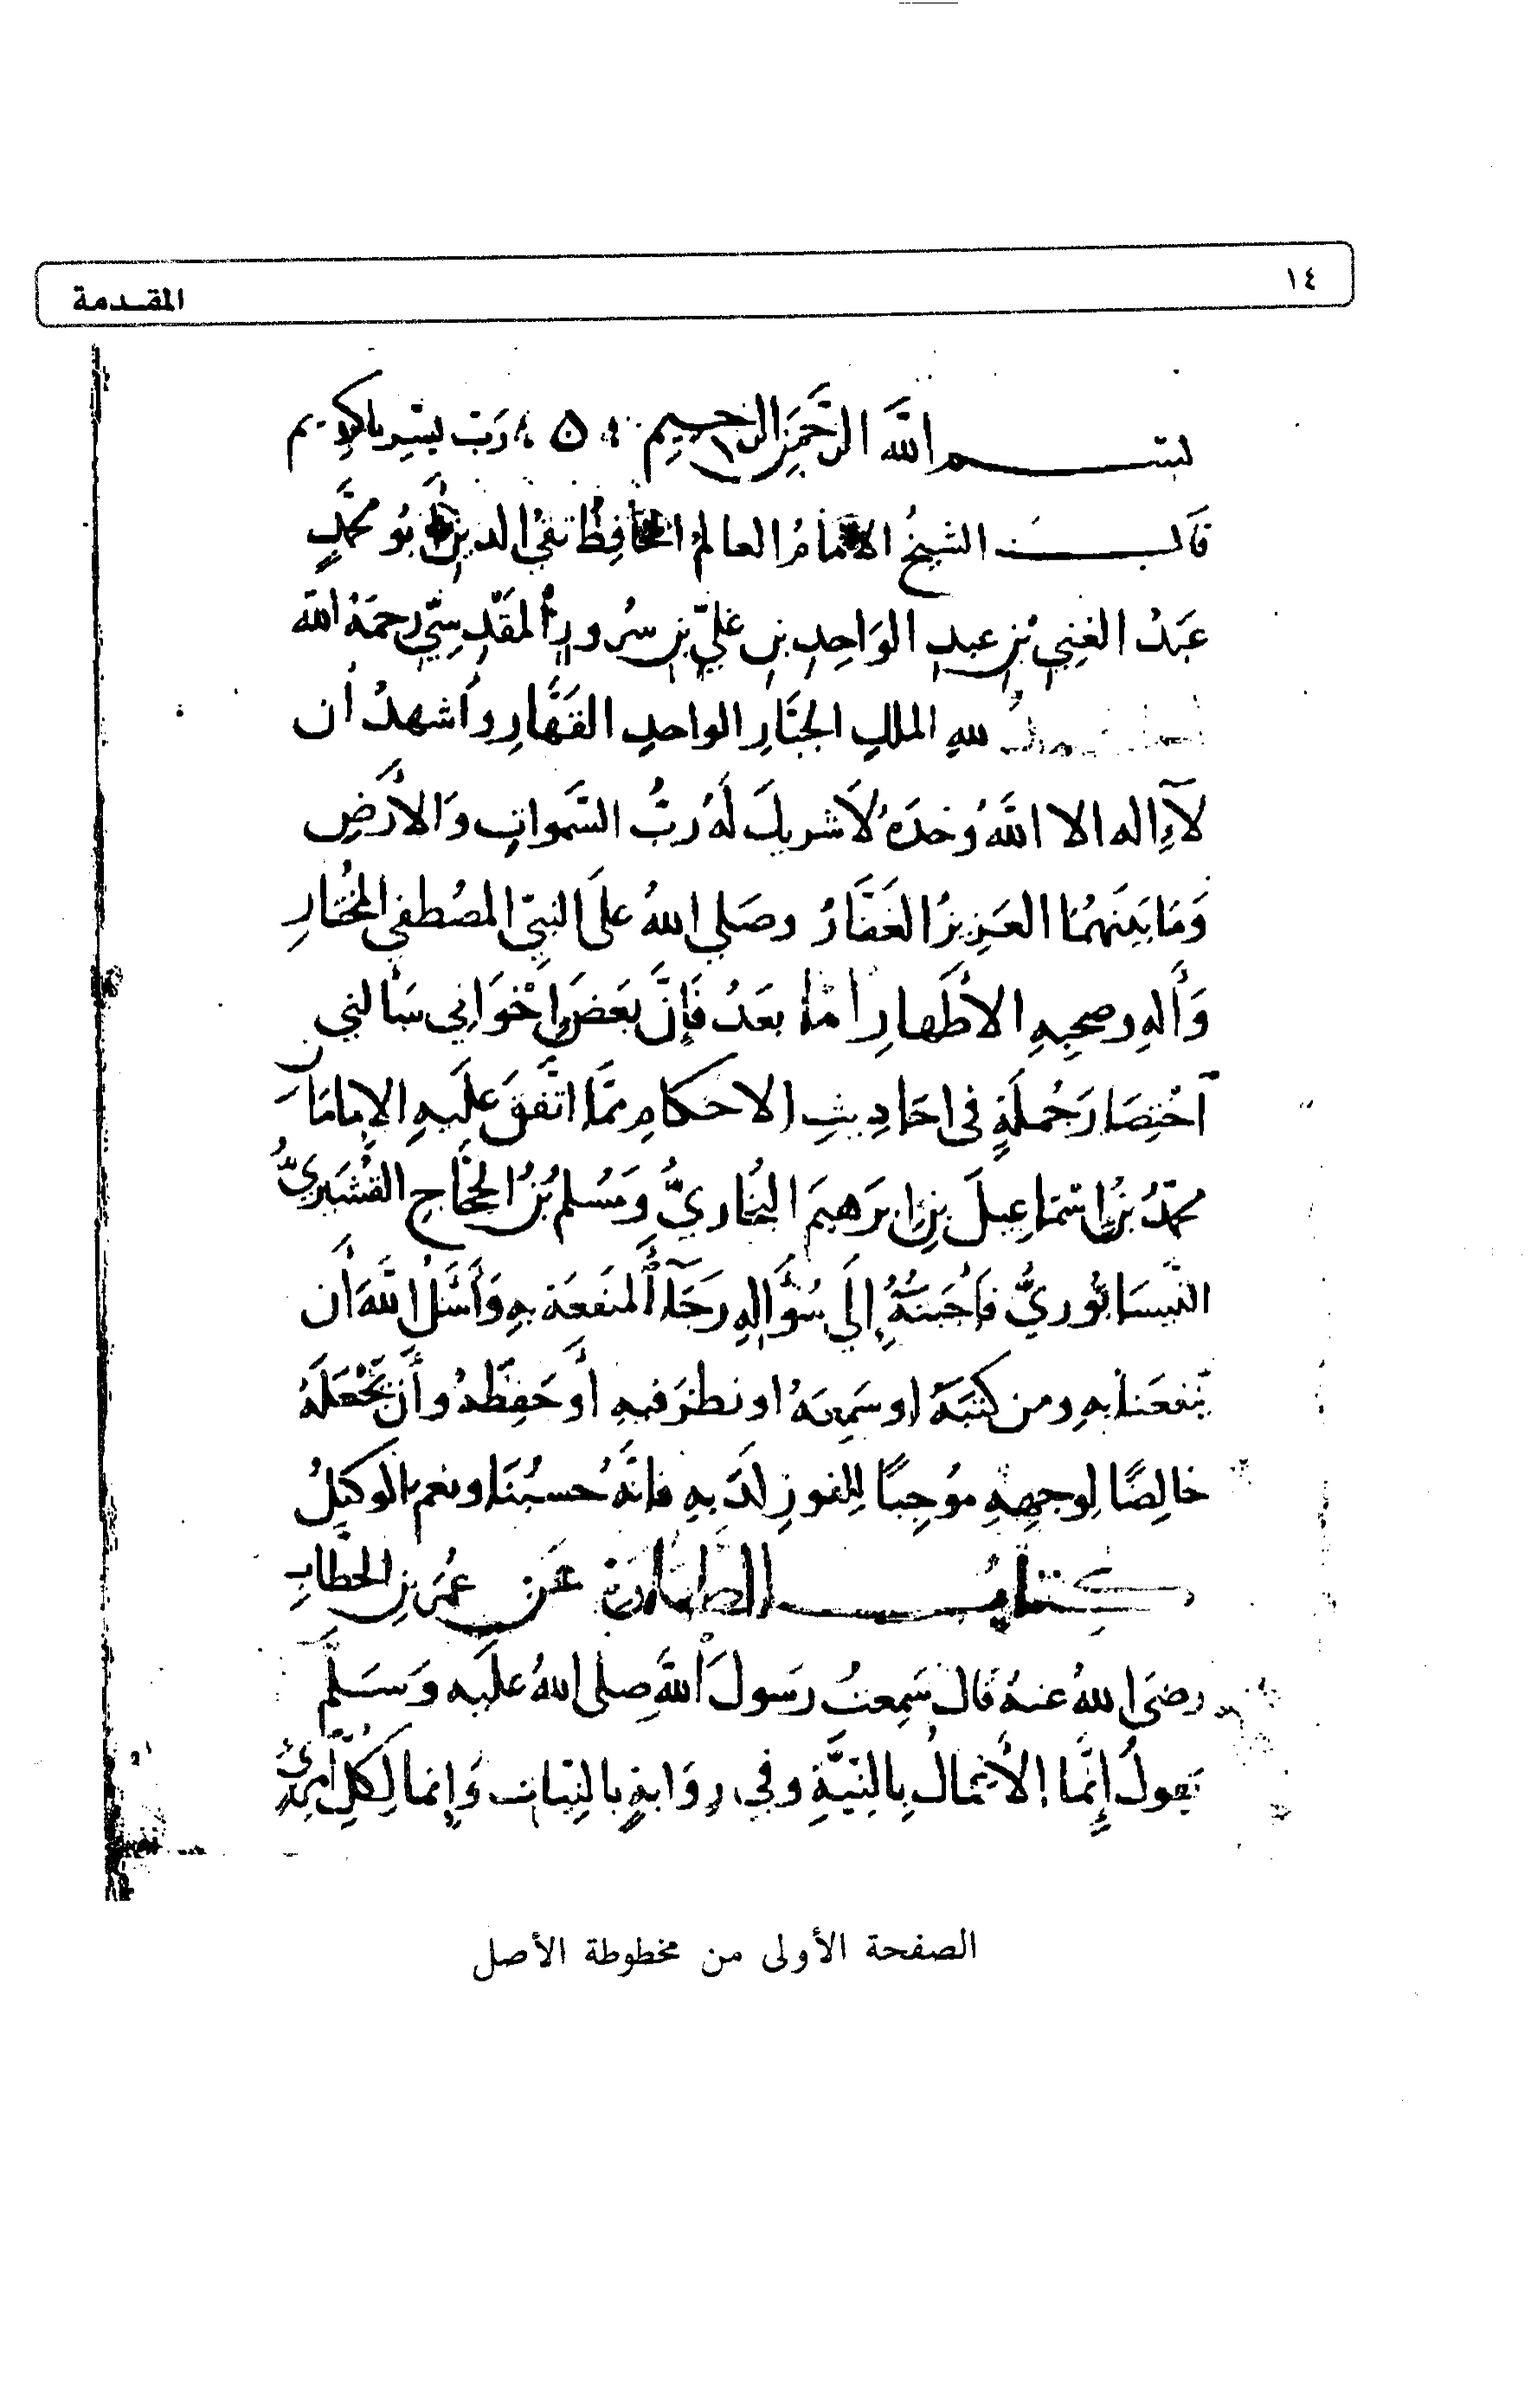 ١٤
المقدمة
بسم الله الرحمن الرحيم رب يسر يا كريم
قال الشيخ الامام العالم الحافظ تقي الدين أبو محمد
عبد الغني بن عبد الواحد بن علي بن سرور المقدسي رحمه الله
لله الملك الجبار الواحد القهار وأشهد أن
لا إله الا الله وحده لا شريك له رب السموات والأرض
وما بينهما العزيز الغفار وصلى الله على النبي المصطفى المختار
وآله وصحبه الأطهار أما بعد فإن بعض إخواني سألني
اختصار جملة في احاديث الاحكام مما اتفق عليه الإمامان
محمد بن إسماعيل بن إبرهيم البخاري ومسلم بن الحجاج القشيري
النيسابوري فأجبته إلى سؤاله رجآء المنفعة به وأسئل الله أن
ينفعنا به ومن كتبه او سمعه او نظر فيه أو حفظه وأن يجعله
خالصًا لوجهه موجبًا للفوز لديه فانه حسبنا ونعم الوكيل
كتاب الطهارة عن عمر بن الخطاب
رضي الله عنه قال سمعت رسول الله صلى الله عليه وسلم
يقول إنما الأعمال بالنية وفي رواية بالنيات وإنما لكل امرئ
الصفحة الأولى من مخطوطة الأصل